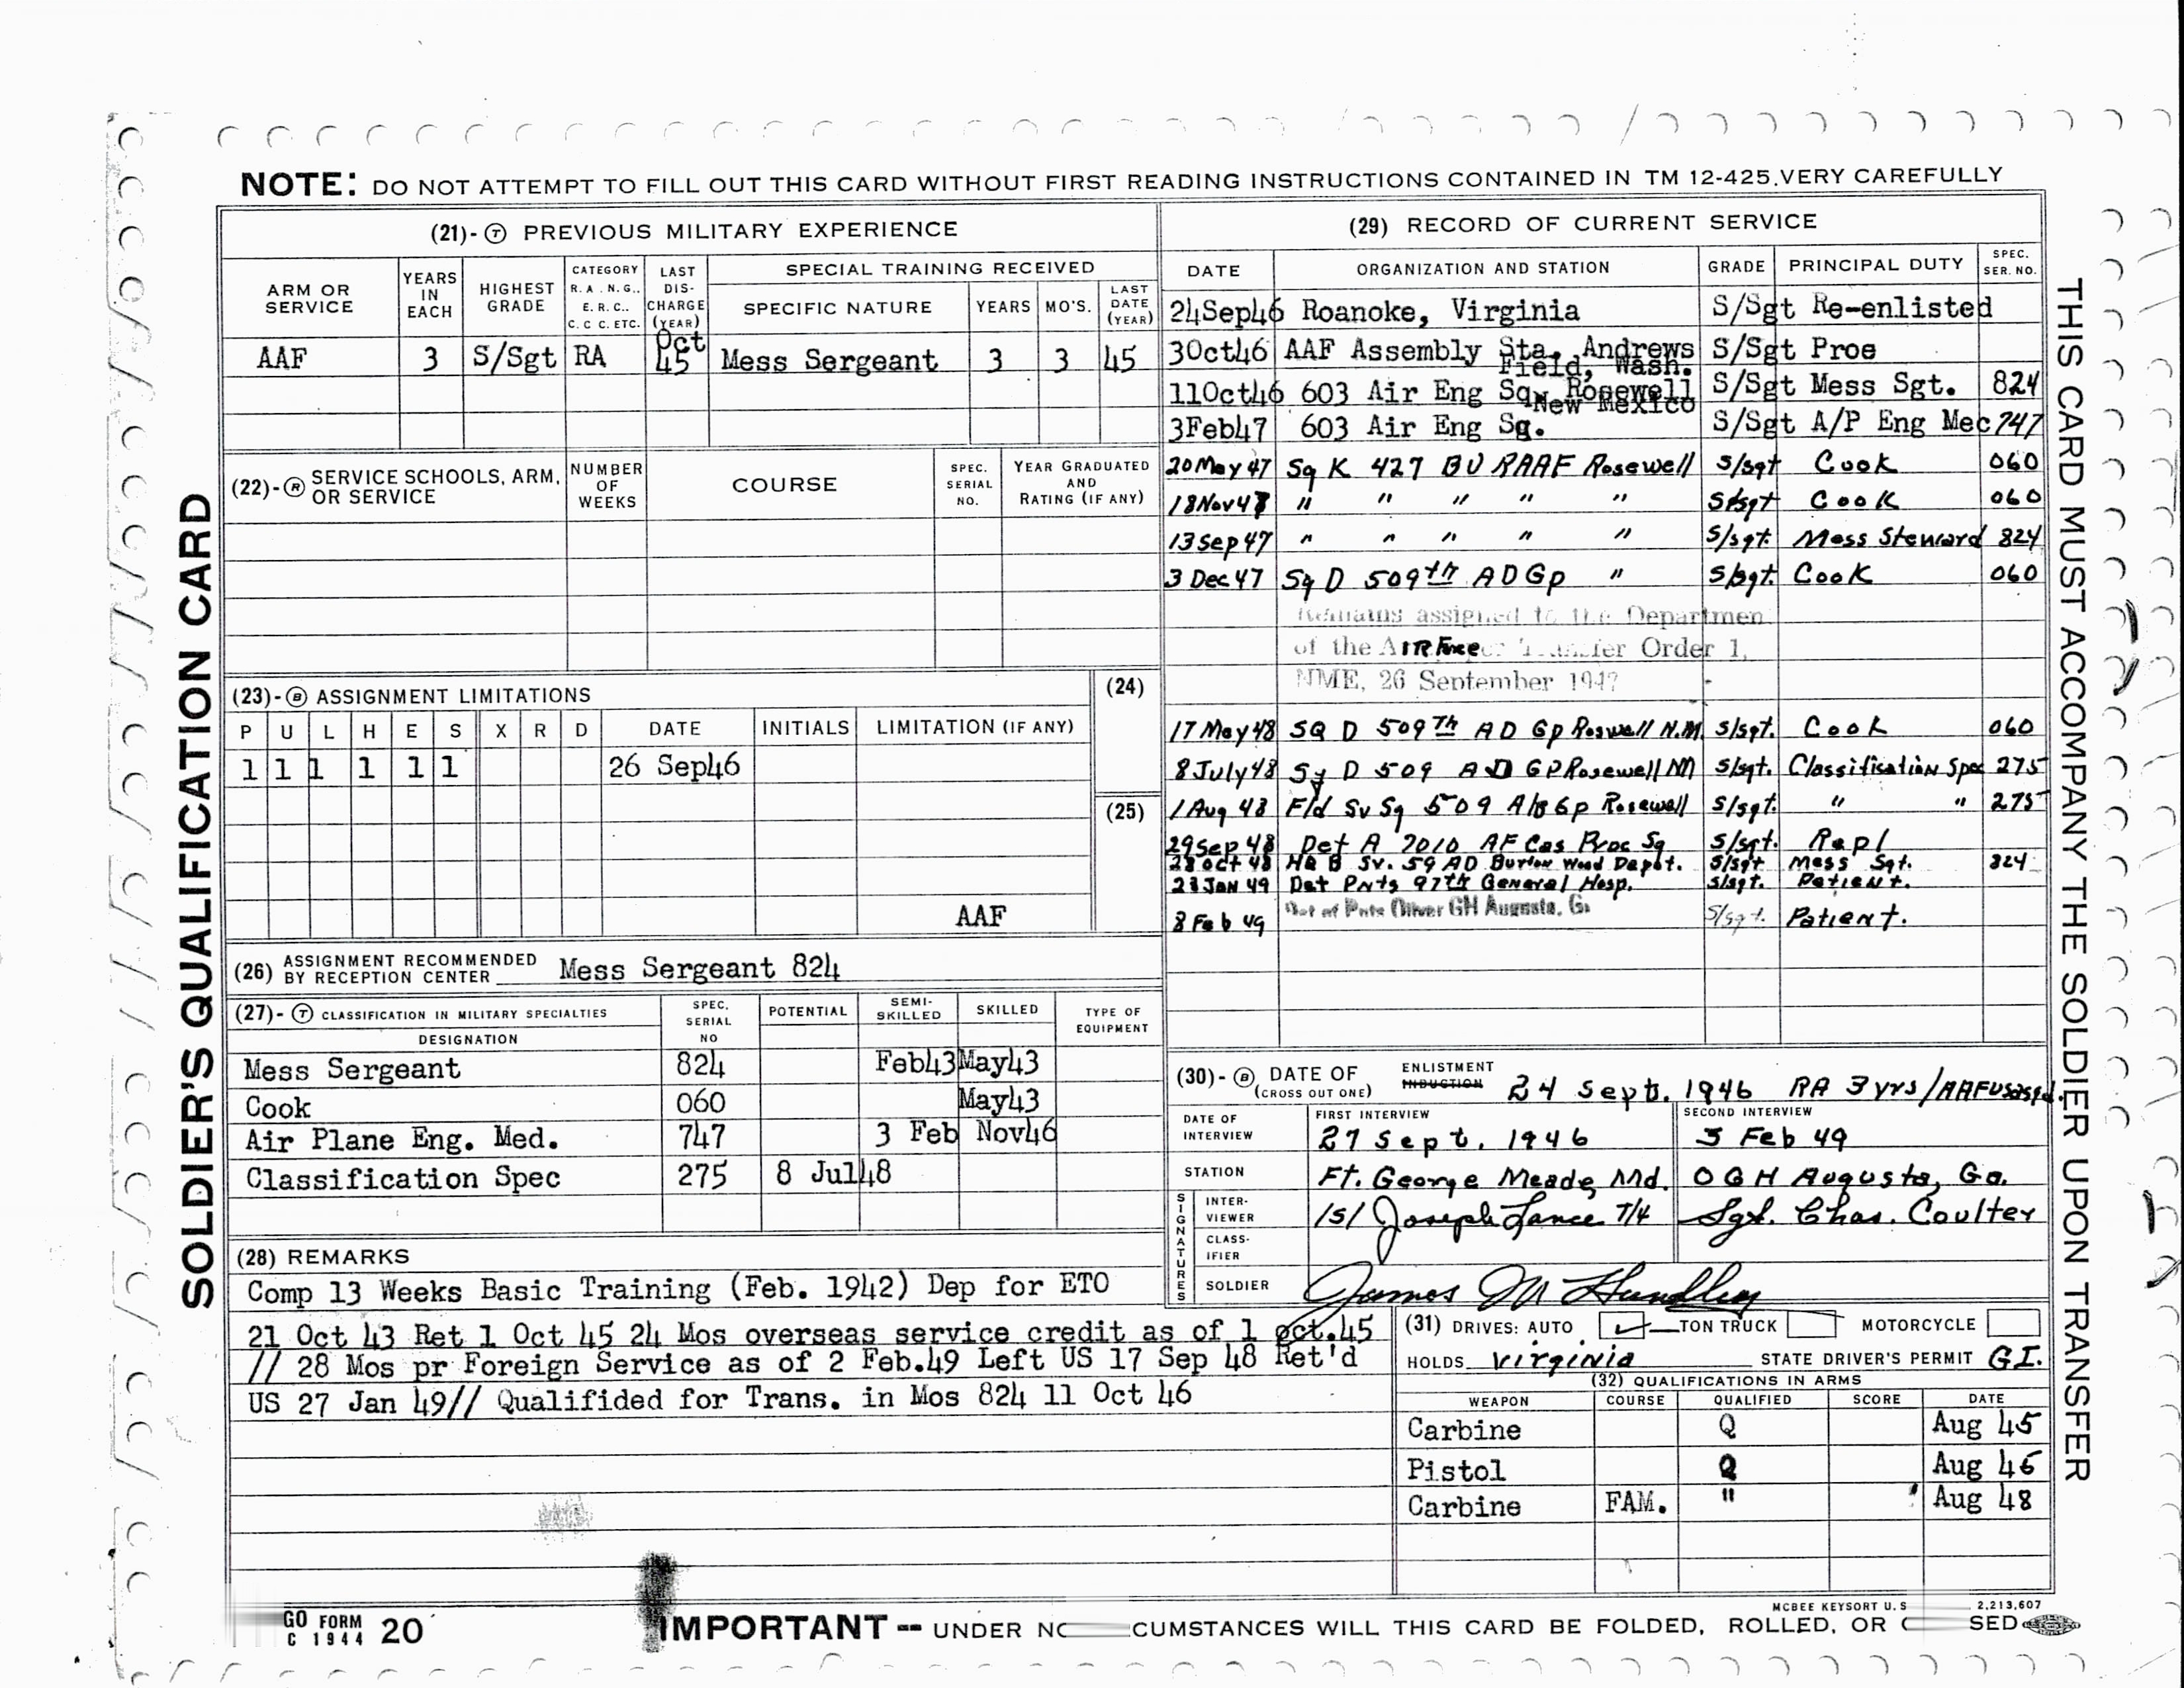 NOTE: DO NOT ATTEMPT TO FILL OUT THIS CARD WITHOUT FIRST READING INSTRUCTIONS CONTAINED IN TM 12-425.VERY CAREFULLY
SOLDIER'S QUALIFICATION CARD
(21)- T PREVIOUS MILITARY EXPERIENCE
ARM OR SERVICE YEARS IN EACH HIGHEST GRADE CATEGORY R.A. N.G., E.R.C., C.C.C. ETC. LAST DIS-CHARGE (YEAR) SPECIAL TRAINING RECEIVED
SPECIFIC NATURE YEARS MO'S. LAST DATE (YEAR)
AAF 3 S/Sgt RA Oct 45 Mess Sergeant 3 3 45
(22)- R SERVICE SCHOOLS, ARM, OR SERVICE NUMBER OF WEEKS COURSE SPEC. SERIAL NO. YEAR GRADUATED AND RATING (IF ANY)
(23)- B ASSIGNMENT LIMITATIONS (24)
P U L H E S X R D DATE INITIALS LIMITATION (IF ANY)
1 1 1 1 1 1 26 Sep46
(25)
AAF
(26) ASSIGNMENT RECOMMENDED BY RECEPTION CENTER Mess Sergeant 824
(27)- T CLASSIFICATION IN MILITARY SPECIALTIES SPEC. SERIAL NO POTENTIAL SEMI-SKILLED SKILLED TYPE OF EQUIPMENT
DESIGNATION
Mess Sergeant 824 Feb43 May43
Cook 060 May43
Air Plane Eng. Med. 747 3 Feb Nov46
Classification Spec 275 8 Jul48
(28) REMARKS
Comp 13 Weeks Basic Training (Feb. 1942) Dep for ETO
21 Oct 43 Ret 1 Oct 45 24 Mos overseas service credit as of 1 oct.45
// 28 Mos pr Foreign Service as of 2 Feb.49 Left US 17 Sep 48 Ret'd
US 27 Jan 49// Qualifided for Trans. in Mos 824 11 Oct 46
(29) RECORD OF CURRENT SERVICE
DATE ORGANIZATION AND STATION GRADE PRINCIPAL DUTY SPEC. SER. NO.
24Sep46 Roanoke, Virginia S/Sgt Re-enlisted
3Oct46 AAF Assembly Sta. Andrews Field, Wash. S/Sgt Proe
11Oct46 603 Air Eng Sq. Rosewell New Mexico S/Sgt Mess Sgt. 824
3Feb47 603 Air Eng Sq. S/Sgt A/P Eng Mec 747
20 May 47 Sq K 427 BU RAAF Rosewell S/sgt Cook 060
18 Nov 47 " " " " " S/sgt Cook 060
13 Sep 47 " " " " " S/sgt. Mess Steward 824
3 Dec 47 Sq D 509th A D Gp " S/sgt. Cook 060
Remains assigned to the Departmen
of the AIR Force Transfer Order 1,
NME, 26 September 1947
17 May 48 SQ D 509Th A D Gp Roswell N.M. S/sgt. Cook 060
8 July 48 Sq D 509 A D GP Rosewell NM S/sgt. Classification Spec 275
1 Aug 48 Fld Sv Sq 509 A/B Gp Rosewell S/sgt. " " 275
29 Sep 48 Det A 7010 AF Cas Proc Sq S/sgt. Repl
28 Oct 48 HQ B Sv. 59 AD Burton Wood Depot. S/sgt Mess Sgt. 824
23 JAN 49 Det Pnts 97th General Hosp. S/sgt. Patient.
8 Feb 49 Det of Pnts Oliver GH Augusta, Ga S/sgt. Patient.
(30)- B DATE OF (CROSS OUT ONE) ENLISTMENT INDUCTION 24 Sept. 1946 RA 3 yrs/AAFUsasgd.
DATE OF INTERVIEW FIRST INTERVIEW 27 Sept. 1946 SECOND INTERVIEW 5 Feb 49
STATION Ft. George Meade, Md. OGH Augusta, Ga.
SIGNATURES
INTER-VIEWER /s/ Joseph Lance T/4 Sgt. Chas. Coulter
CLASS-IFIER
SOLDIER James M Hundley
(31) DRIVES: AUTO TON TRUCK MOTORCYCLE
HOLDS Virginia STATE DRIVER'S PERMIT G.I.
(32) QUALIFICATIONS IN ARMS
WEAPON COURSE QUALIFIED SCORE DATE
Carbine Q Aug 45
Pistol Q Aug 46
Carbine FAM. " Aug 48
THIS CARD MUST ACCOMPANY THE SOLDIER UPON TRANSFER
MCBEE KEYSORT U.S 2,213,607
GO FORM 20
C 1944
IMPORTANT -- UNDER NO CUMSTANCES WILL THIS CARD BE FOLDED, ROLLED, OR SED